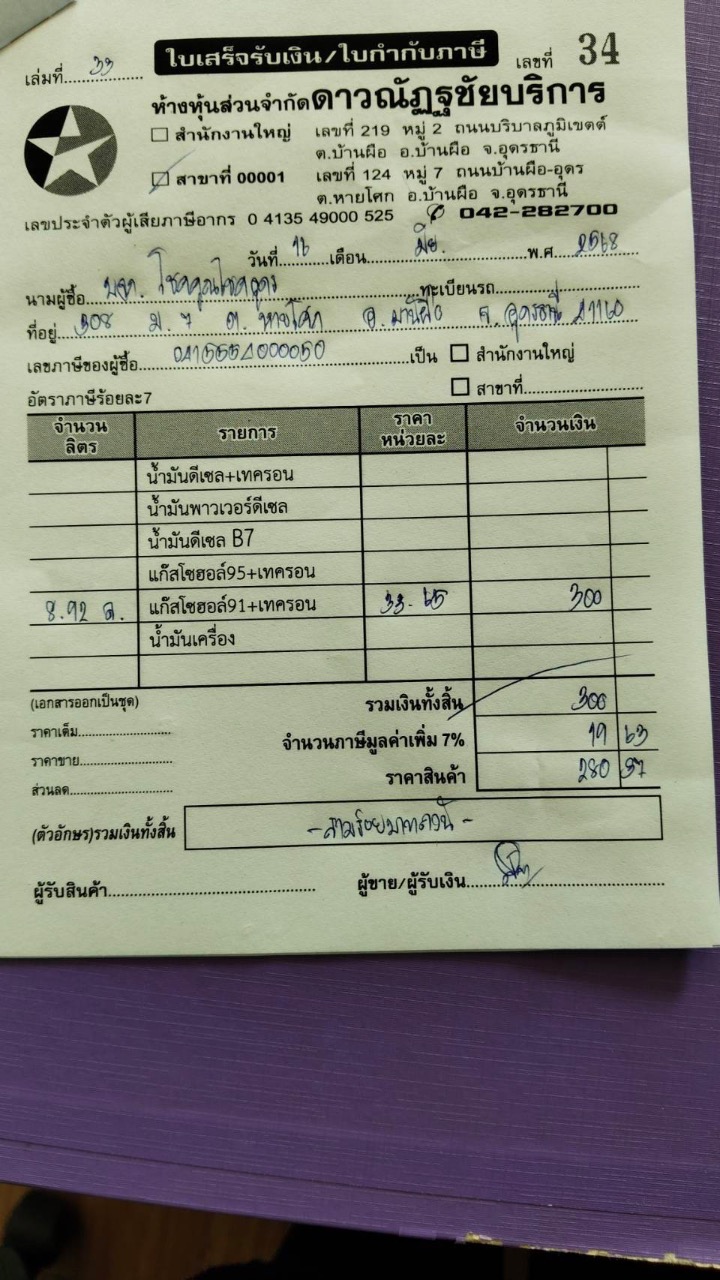 ใบเสร็จรับเงิน/ใบกำกับภาษี
เล่มที่ 33 เลขที่ 34
ห้างหุ้นส่วนจำกัดดาวณัฏฐชัยบริการ
สำนักงานใหญ่ เลขที่ 219 หมู่ 2 ถนนบริบาลภูมิเขตต์
ต.บ้านผือ อ.บ้านผือ จ.อุดรธานี
สาขาที่ 00001 เลขที่ 124 หมู่ 7 ถนนบ้านผือ-อุดร
ต.หายโศก อ.บ้านผือ จ.อุดรธานี
เลขประจำตัวผู้เสียภาษีอากร 0 4135 49000 525 042-282700
วันที่ 16 เดือน มิย. พ.ศ. 2568
นามผู้ซื้อ บจก. โชคคูณโชคอุดร ทะเบียนรถ
ที่อยู่ 308 ม. 7 ต. หายโศก อ. บ้านผือ จ. อุดรธานี 41160
เลขภาษีของผู้ซื้อ 0415554000050 เป็น สำนักงานใหญ่
อัตราภาษีร้อยละ7 สาขาที่
จำนวนลิตร รายการ ราคาหน่วยละ จำนวนเงิน
น้ำมันดีเซล+เทครอน
น้ำมันพาวเวอร์ดีเซล
น้ำมันดีเซล B7
แก๊สโซฮอล์95+เทครอน
8.92 ล. แก๊สโซฮอล์91+เทครอน 33.65 300
น้ำมันเครื่อง
(เอกสารออกเป็นชุด) รวมเงินทั้งสิ้น 300
ราคาเต็ม จำนวนภาษีมูลค่าเพิ่ม 7% 19 63
ราคาขาย ราคาสินค้า 280 37
ส่วนลด
(ตัวอักษร)รวมเงินทั้งสิ้น -สามร้อยบาทถ้วน-
ผู้รับสินค้า ผู้ขาย/ผู้รับเงิน